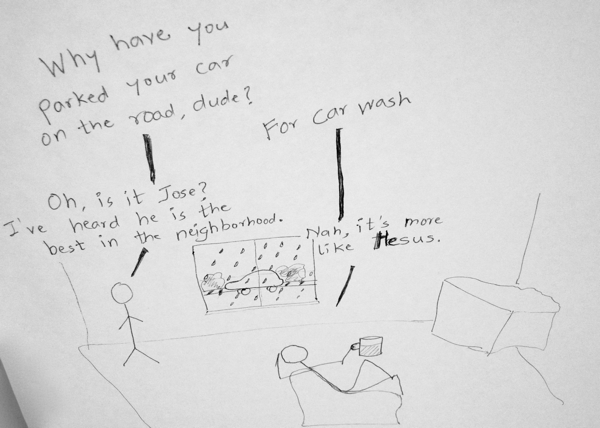 Why have you
parked your car
on the road, dude?
For car wash
Oh, is it Jose?
I've heard he is the
best in the neighborhood.
Nah, it's more
like Hesus.